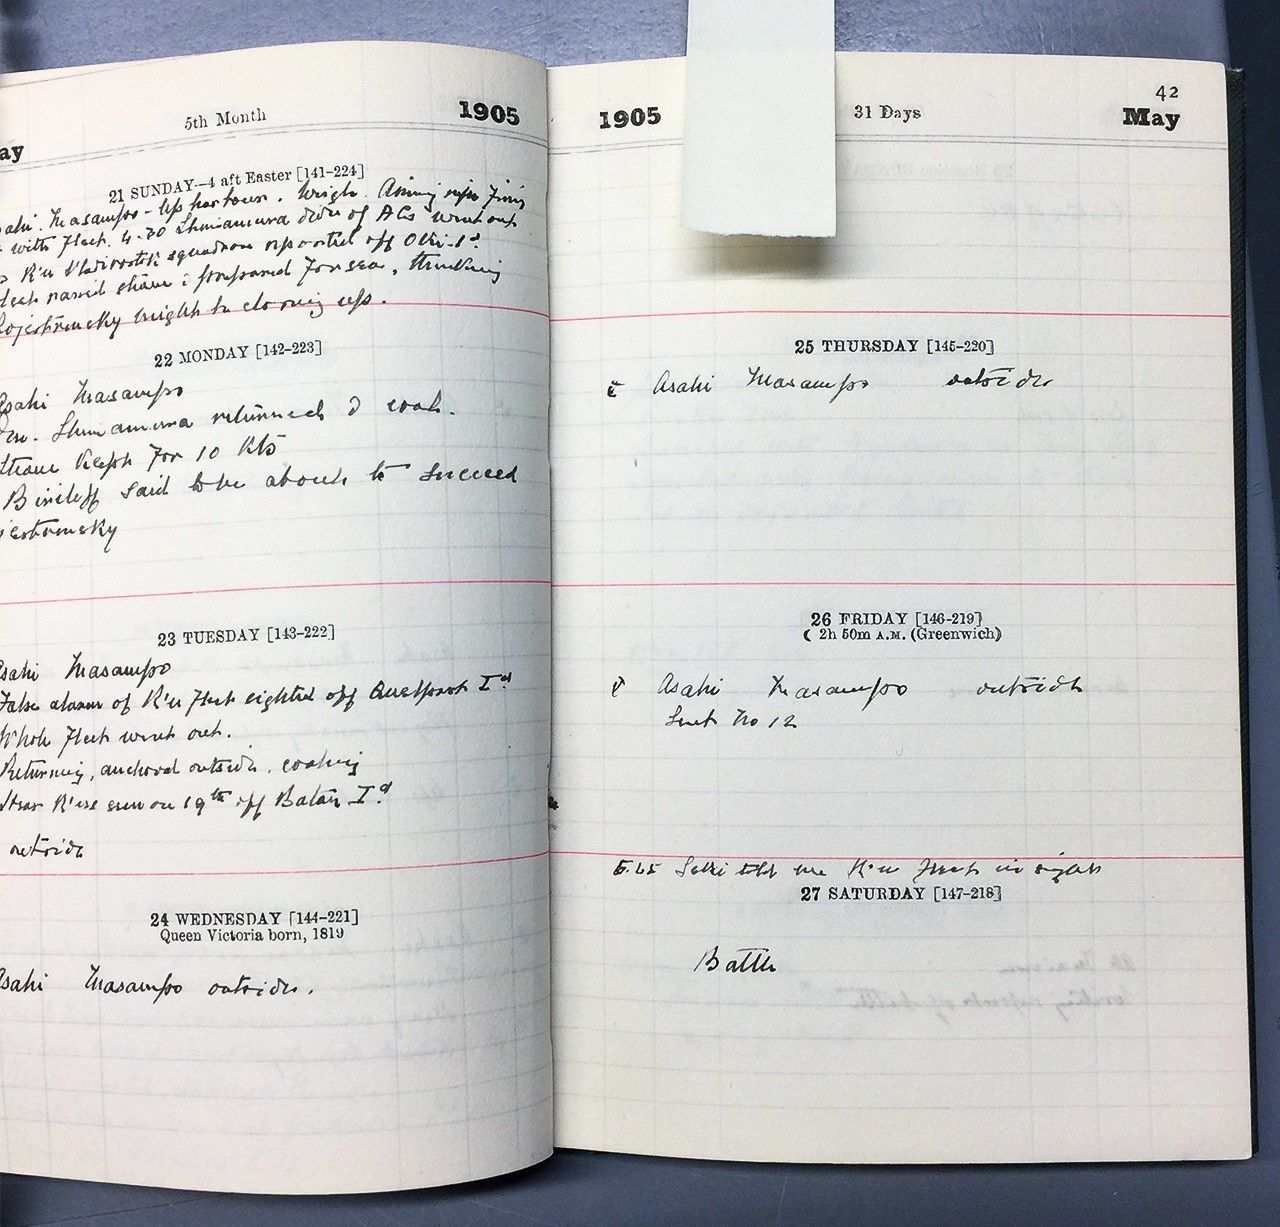 5th Month 1905
ay
21 SUNDAY—4 aft Easter [141-224]
Masampo - up harbour. Weigh. Aiming rifle firing
with Fleet. 4.30 Shimamura divn of ACs went out
R'n Vladivostok squadron reported off Oki Id
named steam & prepared for sea, thinking
might be closing up.
22 MONDAY [142-223]
Asahi Masampo
Shimamura returned & coal.
Steam kept for 10 Kts
Birileff said to be about to succeed
23 TUESDAY [143-222]
Asahi Masampo
False alarm of R'n Fleet sighted off Quelpart Id
Whole Fleet went out.
Returning, anchored outside. coaling
Hear R'ns seen on 19th off Batan Id
outside
24 WEDNESDAY [144-221]
Queen Victoria born, 1819
Asahi Masampo outside.
42
1905 31 Days May
25 THURSDAY [145-220]
Asahi Masampo outside
26 FRIDAY [146-219]
☾ 2h 50m A.M. (Greenwich)
Asahi Masampo outside
Sent No 12
5.25 Seki told me R'n Fleet in sight
27 SATURDAY [147-218]
Battle